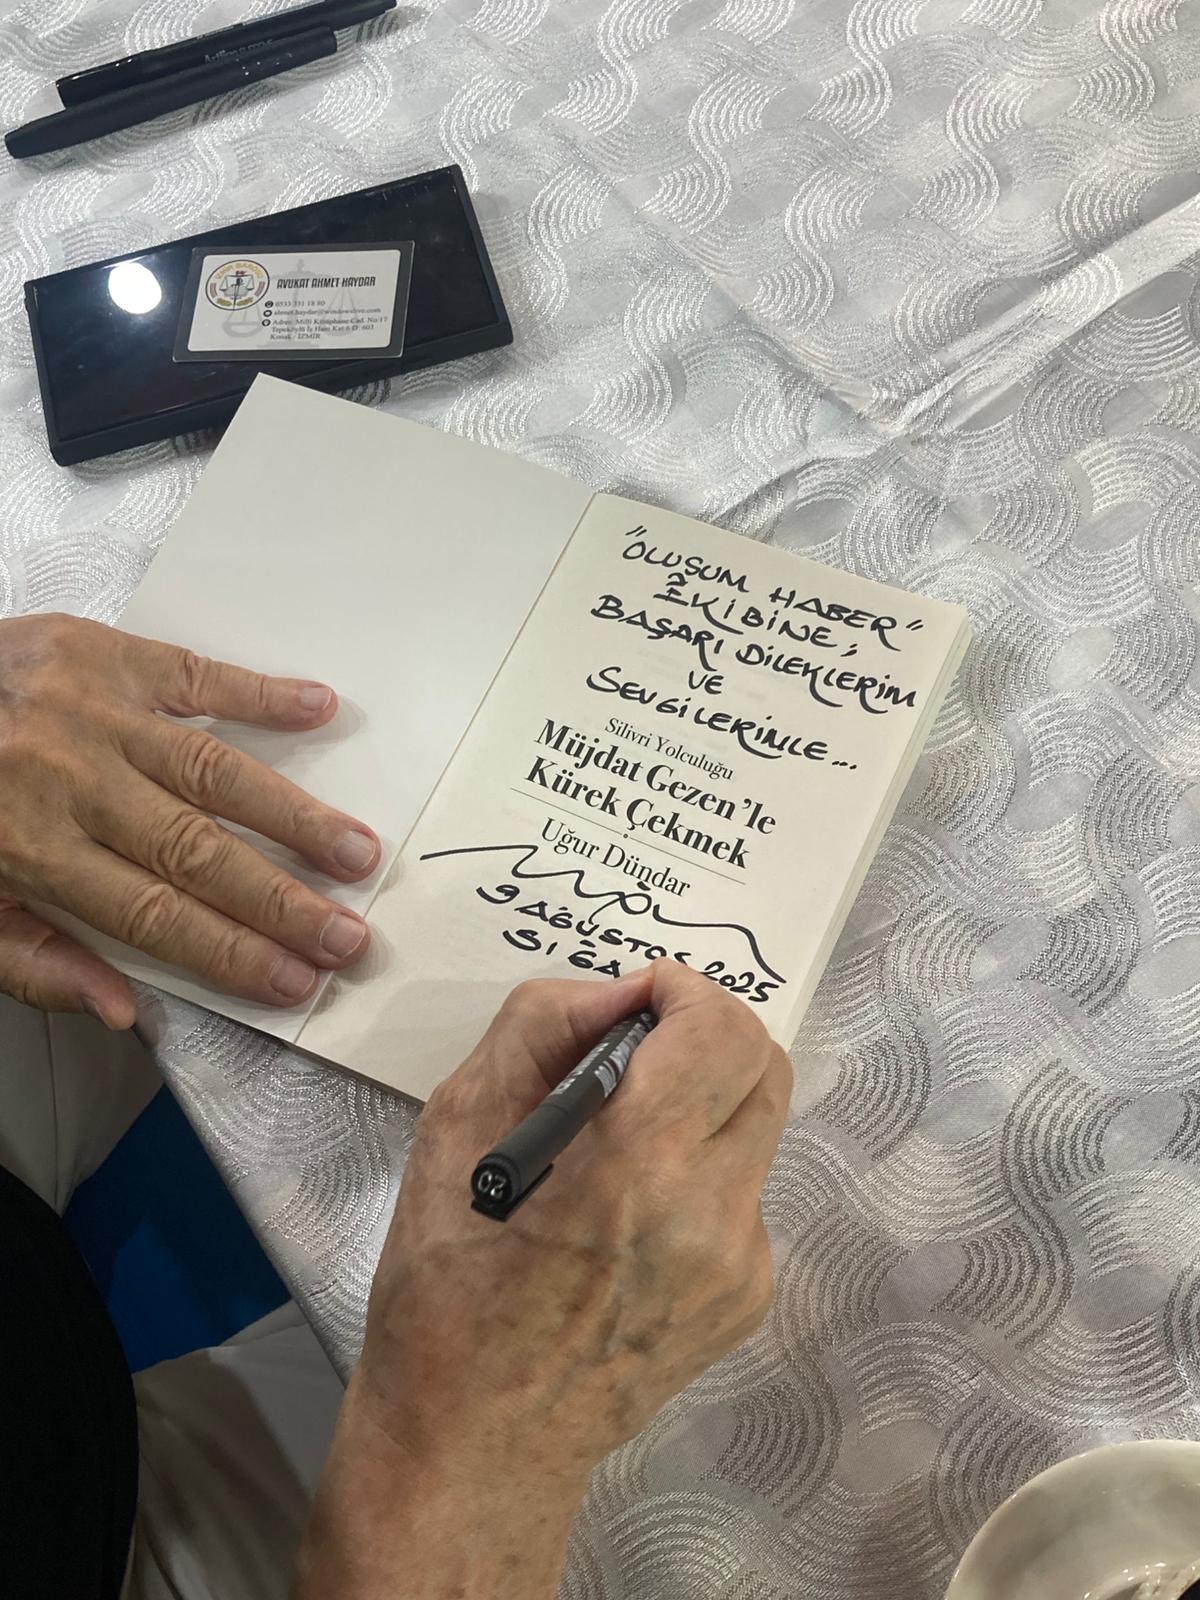 AVUKAT AHMET HAYDAR
0533 331 18 80
ahmet.haydar@windowslive.com
Adres: Milli Kütüphane Cad. No:17
Tepeköylü İş Hanı Kat:6 D: 603
Konak / İZMİR
"OLUŞUM HABER"
EKİBİNE,
BAŞARI DİLEKLERİM
VE
SEVGİLERİMLE...
Silivri Yolculuğu
Müjdat Gezen'le
Kürek Çekmek
Uğur Dündar
9 AĞUSTOS 2025
SIĞA
20